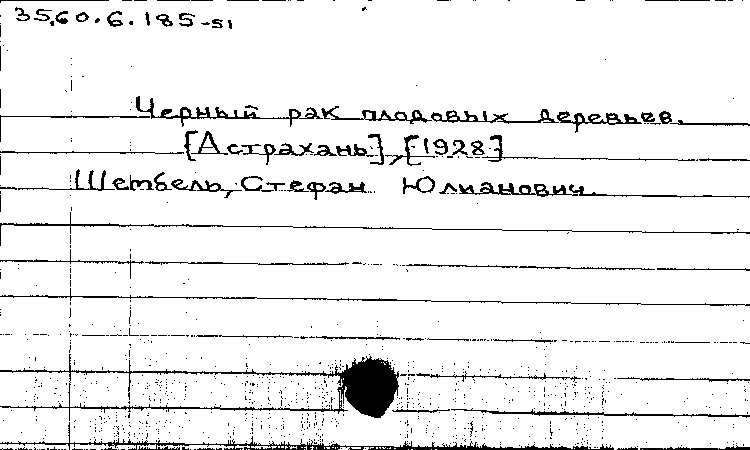 35.60.6.185-51
Черный рак плодовых деревьев.
[Астрахань], [1928]
Шембель, Стефан Юлианович.